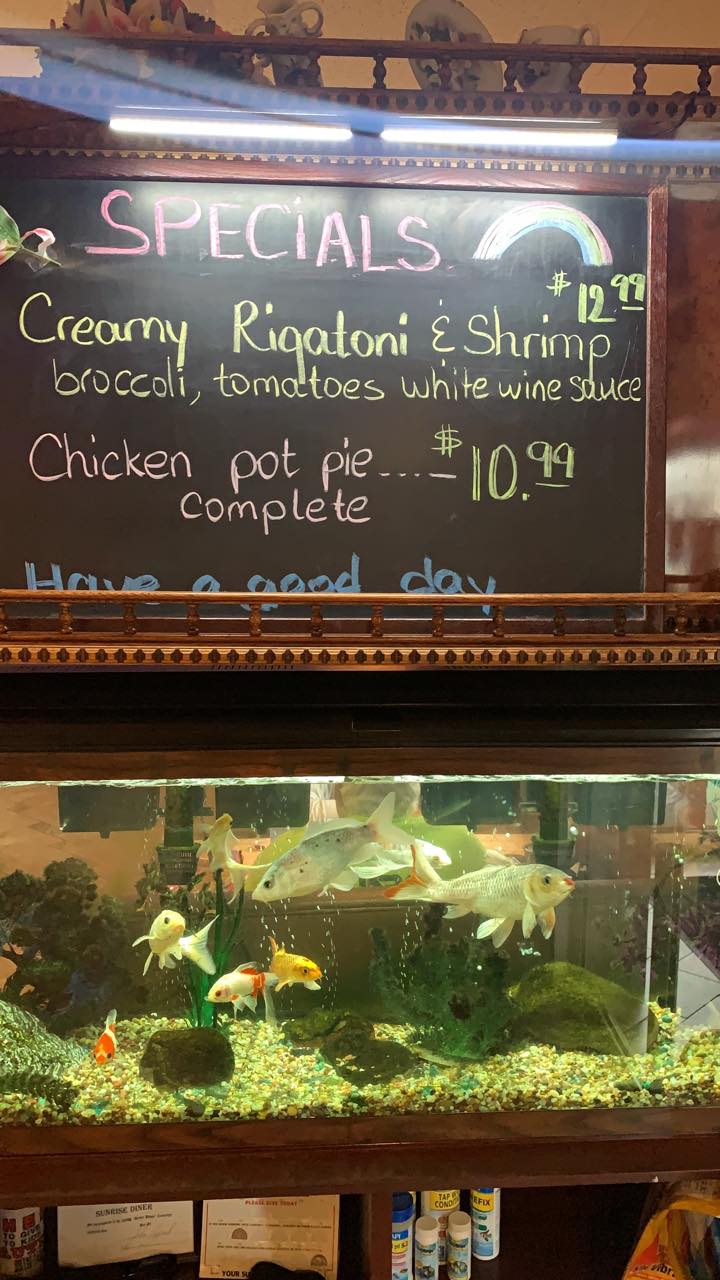 SPECIALS
$12.99
Creamy Rigatoni & Shrimp
broccoli, tomatoes white wine sauce
Chicken pot pie....— $10.99
complete
Have a good day
SUNRISE DINER
PLEASE GIVE TODAY
YOUR SU
TAP W
CONDIT
EFIX
API